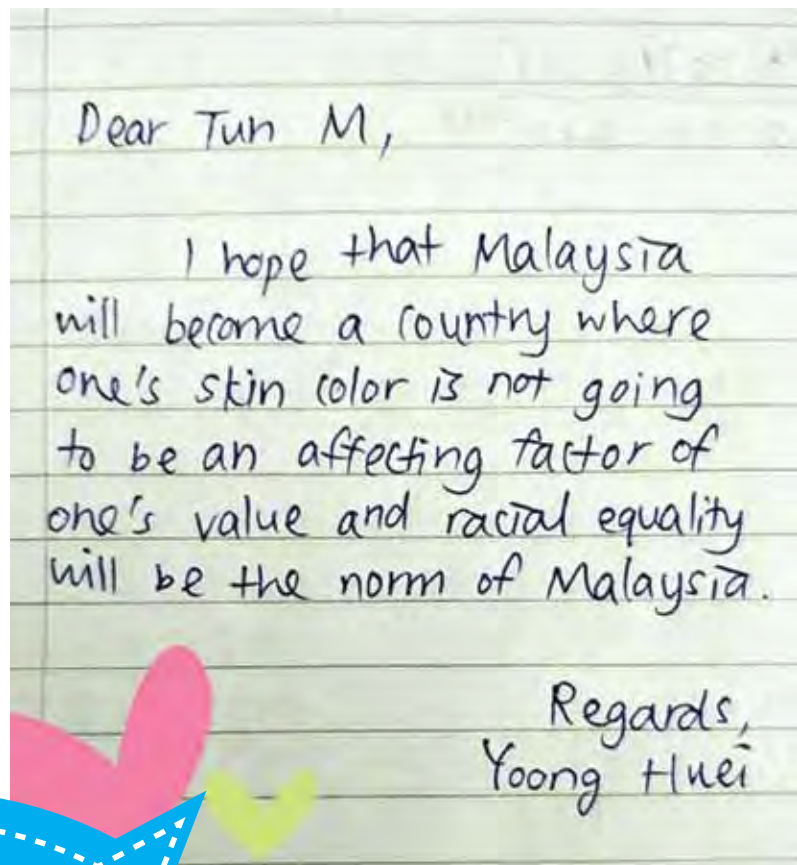 Dear Tun M,
I hope that Malaysia
will become a country where
one's skin color is not going
to be an affecting factor of
one's value and racial equality
will be the norm of Malaysia.
Regards,
Yoong Huei